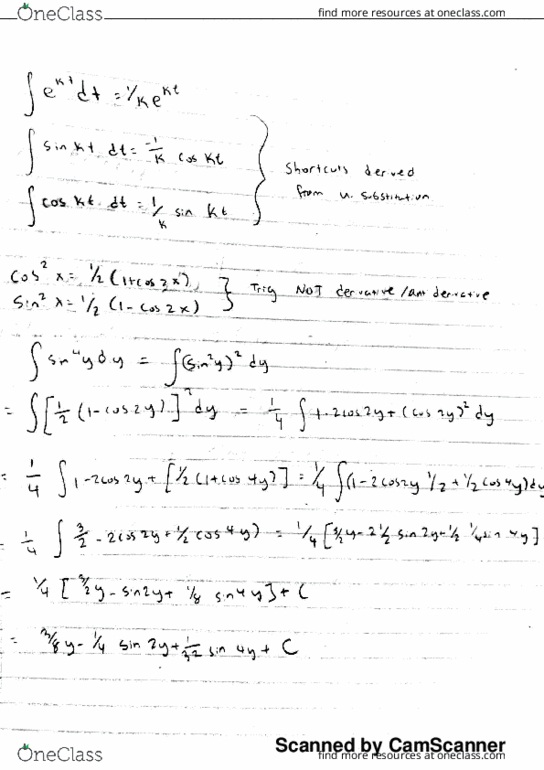 OneClass
find more resources at oneclass.com
∫ e^kt dt = 1/k e^kt
∫ sin kt dt = -1/k cos kt
∫ cos kt dt = 1/k sin kt
Shortcuts derived
from u. substitution
cos² x = 1/2 (1+cos 2x)
sin² x = 1/2 (1 - cos 2x)
Trig NOT derivative / ant derivative
∫ sin⁴y dy = ∫(sin²y)² dy
= ∫[1/2 (1-cos 2y)]² dy = 1/4 ∫ 1-2cos2y + (cos 2y)² dy
= 1/4 ∫ 1-2cos 2y + [1/2 (1+cos 4y)] = 1/4 ∫(1-2cos2y 1/2 + 1/2 cos 4y) dy
= 1/4 ∫ 3/2 - 2cos2y + 1/2 cos 4y) = 1/4 [3/2y - 2 1/2 sin 2y + 1/2 1/4 sin 4y]
= 1/4 [3/2y - sin2y + 1/8 sin 4y] + C
= 3/8 y - 1/4 sin 2y + 1/32 sin 4y + C
Scanned by CamScanner
OneClass
find more resources at oneclass.com